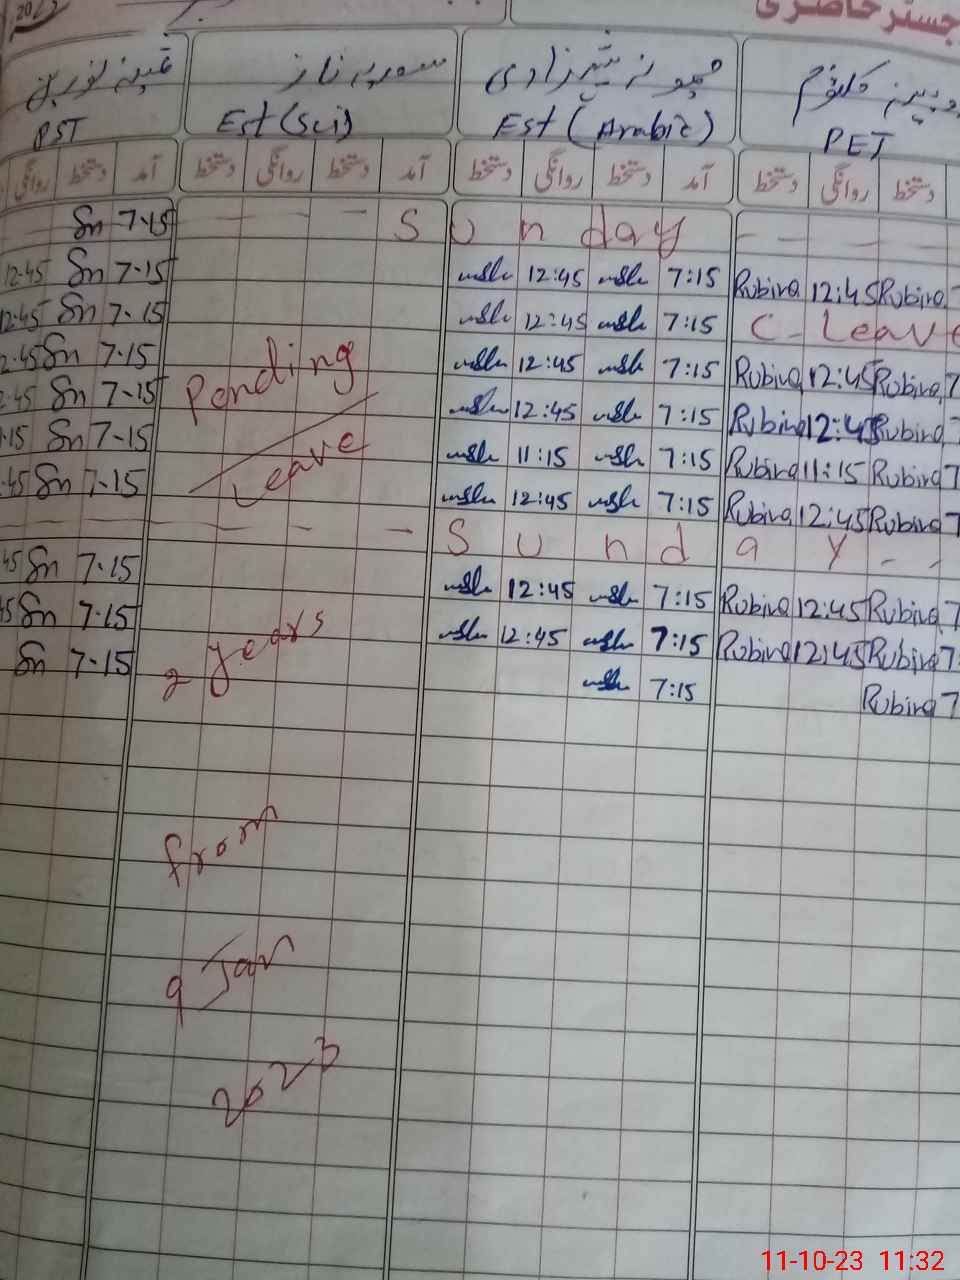 جسٹر حاضری
ثمینہ نورین سومیہ ناز
PST Est (Sci) Est (Arabic) PET
روانگی دستخط آمد دستخط روانگی دستخط آمد دستخط روانگی دستخط آمد دستخط روانگی دستخط
Sn 7-15 — — — S u n d a y — — — —
12:45 Sn 7-15 12:45 7:15 Rubina 12:45 Rubina 7
12:45 Sn 7-15 12:45 7:15 C - Leave
2:45 Sn 7-15 12:45 7:15 Rubina 12:45 Rubina 7
2:45 Sn 7-15 Pending 12:45 7:15 Rubina 12:45 Rubina 7
1:15 Sn 7-15 Leave 11:15 7:15 Rubina 11:15 Rubina 7
:45 Sn 7-15 12:45 7:15 Rubina 12:45 Rubina 7
— — — — — S u n d a y - -
45 Sn 7-15 12:45 7:15 Rubina 12:45 Rubina 7
45 Sn 7-15 12:45 7:15 Rubina 12:45 Rubina 7
Sn 7-15 7:15 Rubina 7
2 years
from
9 Jan
2023
11-10-23 11:32